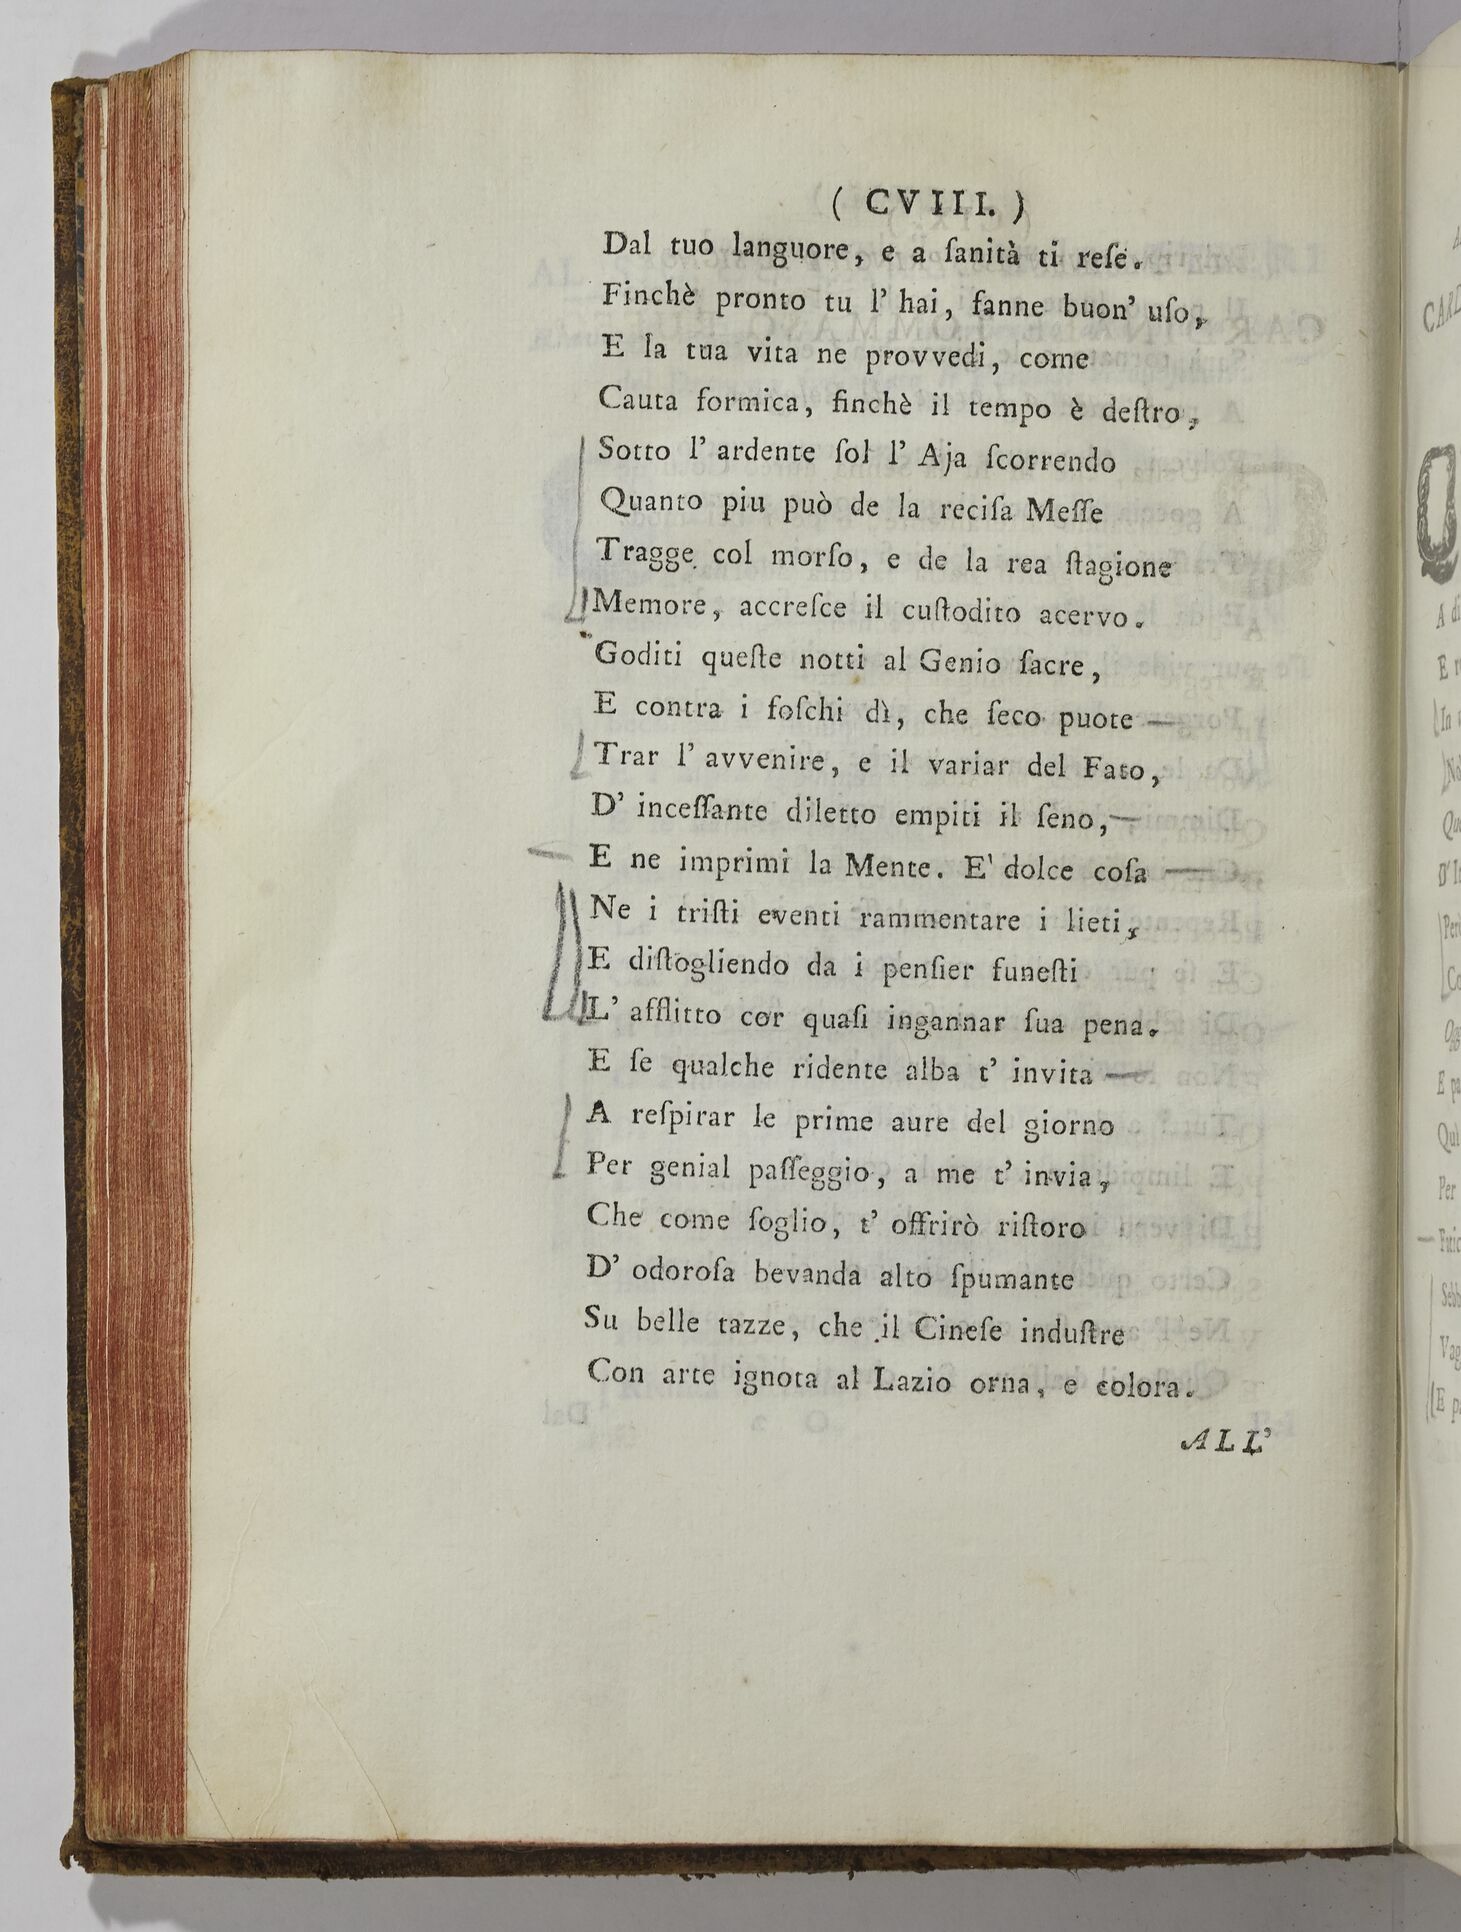 ( CVIII. )
Dal tuo languore, e a ſanità ti reſe.
Finchè pronto tu l' hai, fanne buon' uſo,
E la tua vita ne provvedi, come
Cauta formica, finchè il tempo è deſtro,
Sotto l' ardente ſol l' Aja ſcorrendo
Quanto piu può de la reciſa Meſſe
Tragge col morſo, e de la rea ſtagione
Memore, accreſce il cuſtodito acervo.
Goditi queſte notti al Genio ſacre,
E contra i foſchi dì, che ſeco puote
Trar l' avvenire, e il variar del Fato,
D' inceſſante diletto empiti il ſeno,
E ne imprimi la Mente. E' dolce coſa
Ne i triſti eventi rammentare i lieti,
E diſtogliendo da i penſier funeſti
L' afflitto cor quaſi ingannar ſua pena.
E ſe qualche ridente alba t' invita
A reſpirar le prime aure del giorno
Per genial paſſeggio, a me t' invia,
Che come ſoglio, t' offrirò riſtoro
D' odoroſa bevanda alto ſpumante
Su belle tazze, che il Cineſe induſtre
Con arte ignota al Lazio orna, e colora.
ALL'